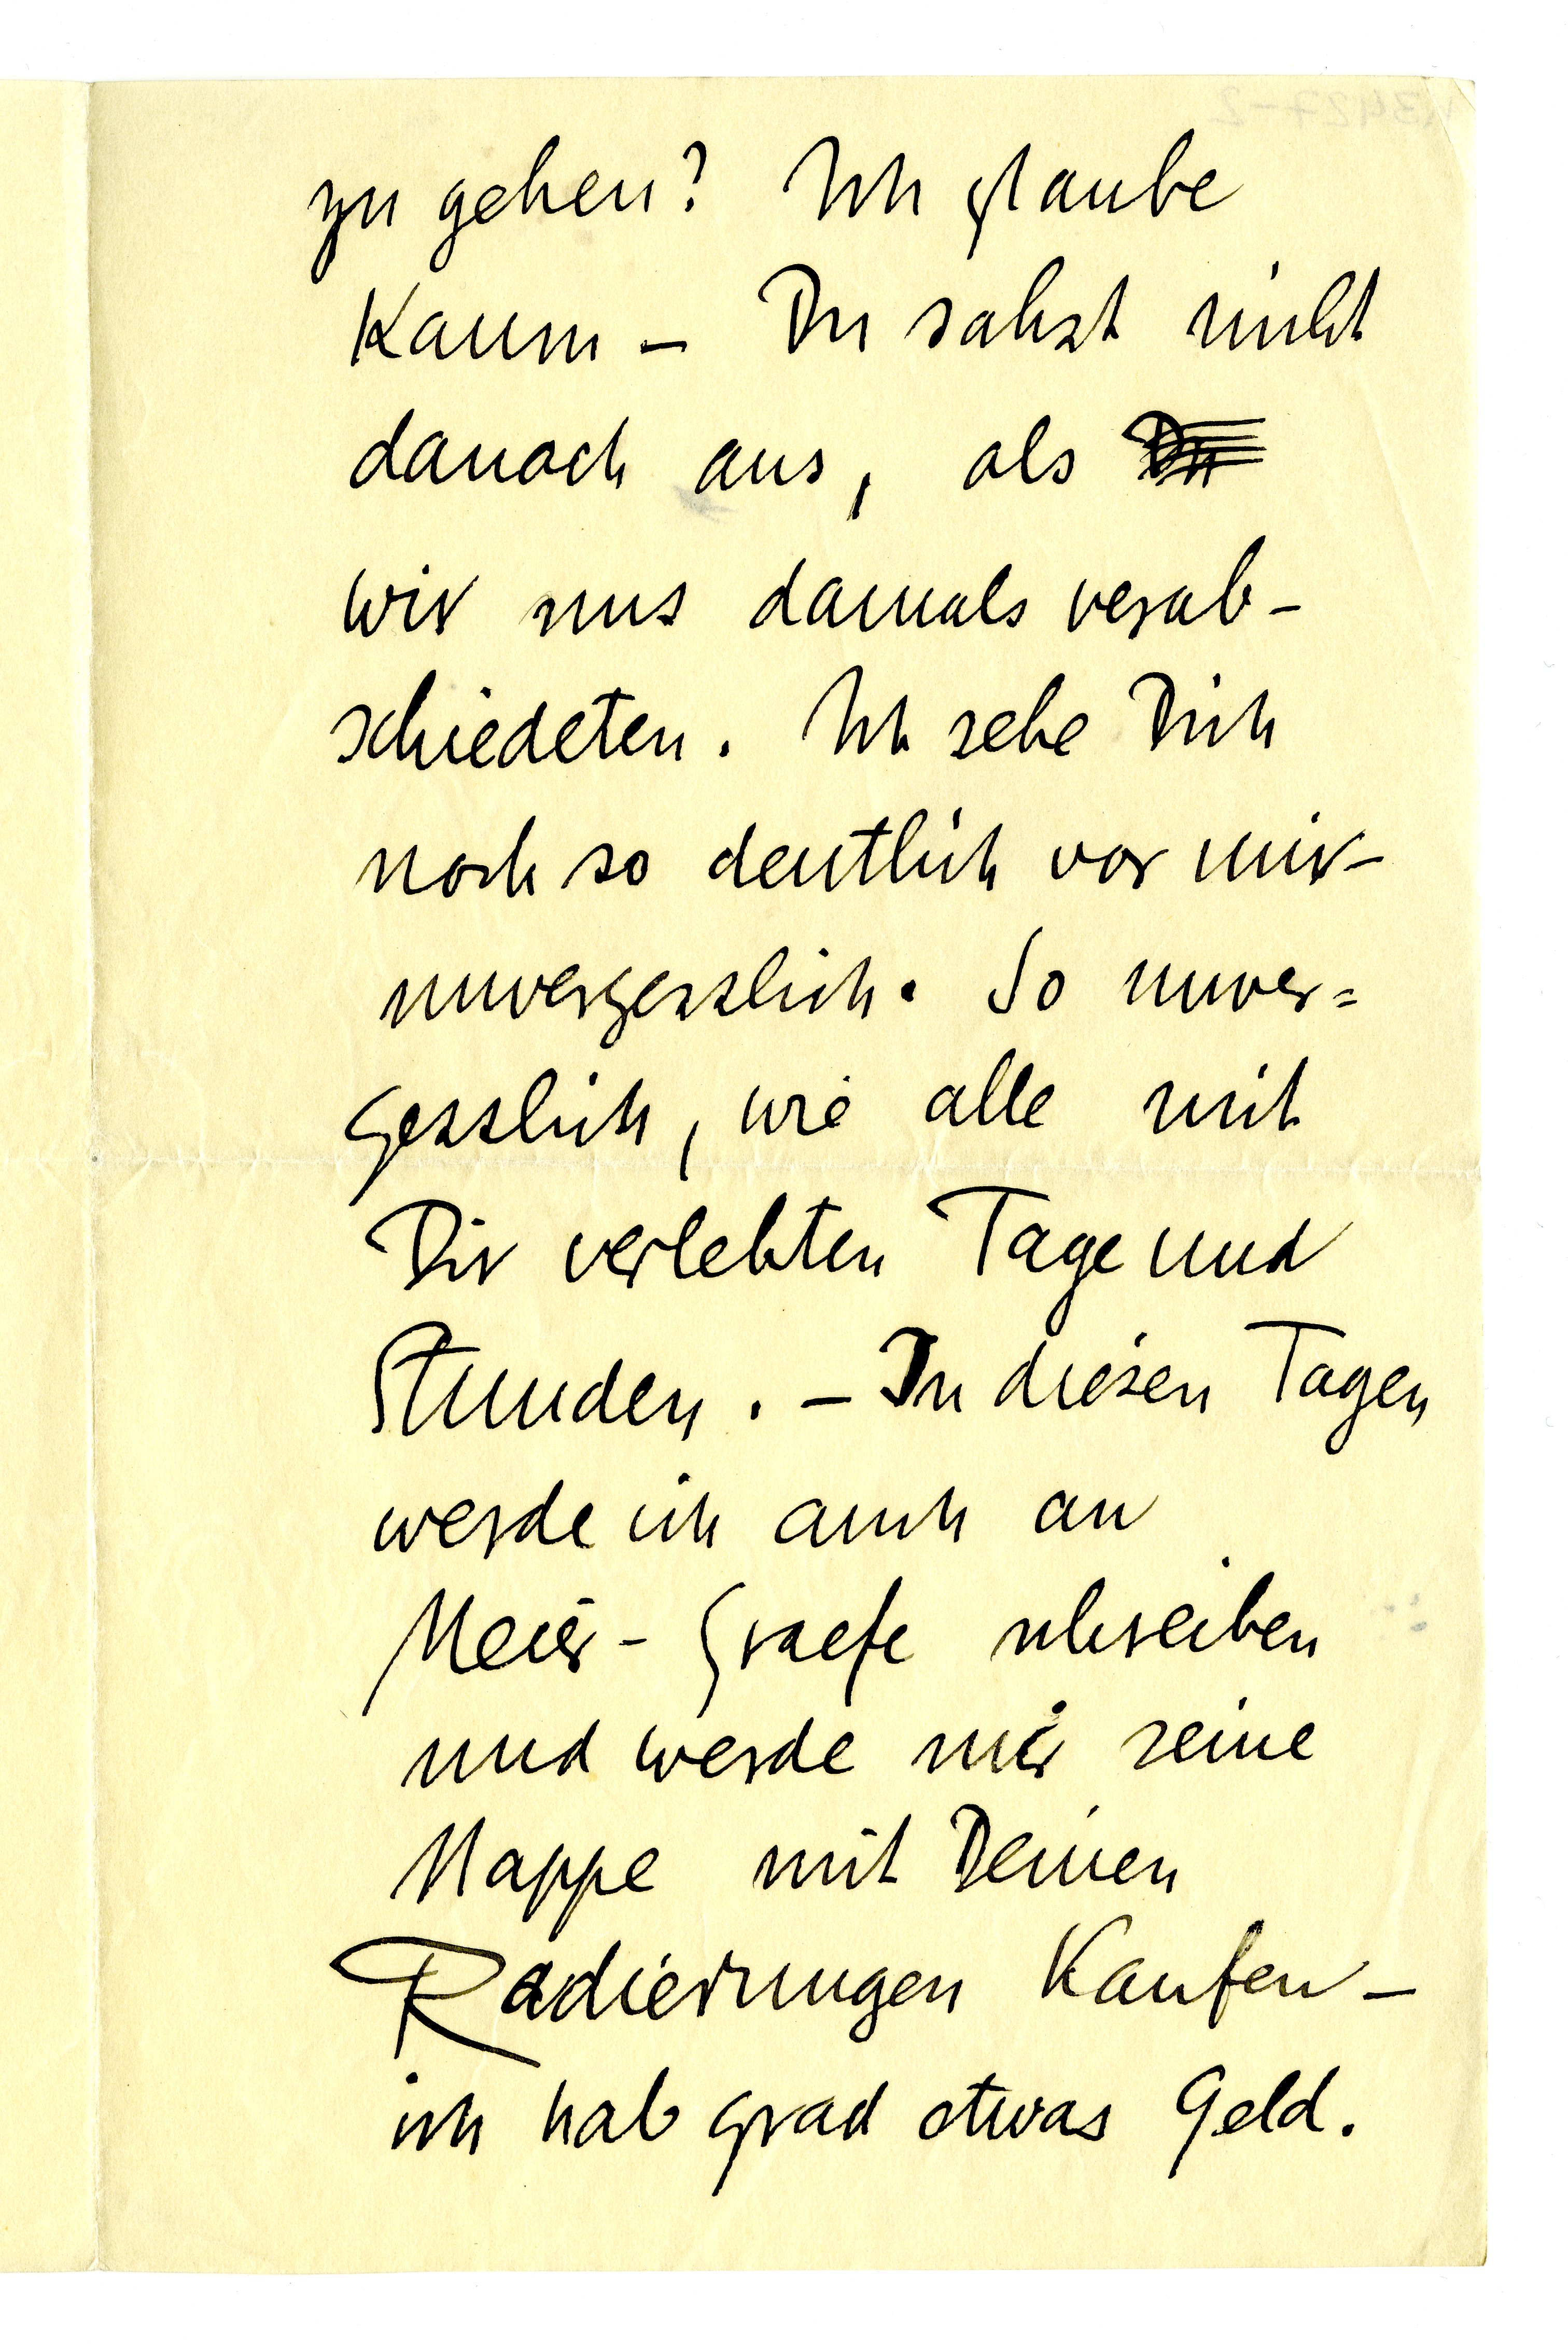 zu gehen? Ich glaube
Kaum – Du sahst nicht
danach aus, als Du
wir uns damals verab-
schiedeten. Ich sehe Dich
noch so deutlich vor mir –
unvergesslich. So unver=
gesslich, wie alle mit
Dir verlebten Tage und
Stunden. – In diesen Tagen
werde ich auch an
Meier-Graefe schreiben
und werde mir seine
Mappe mit Deinen
Radierungen Kaufen –
ich hab grad etwas Geld.